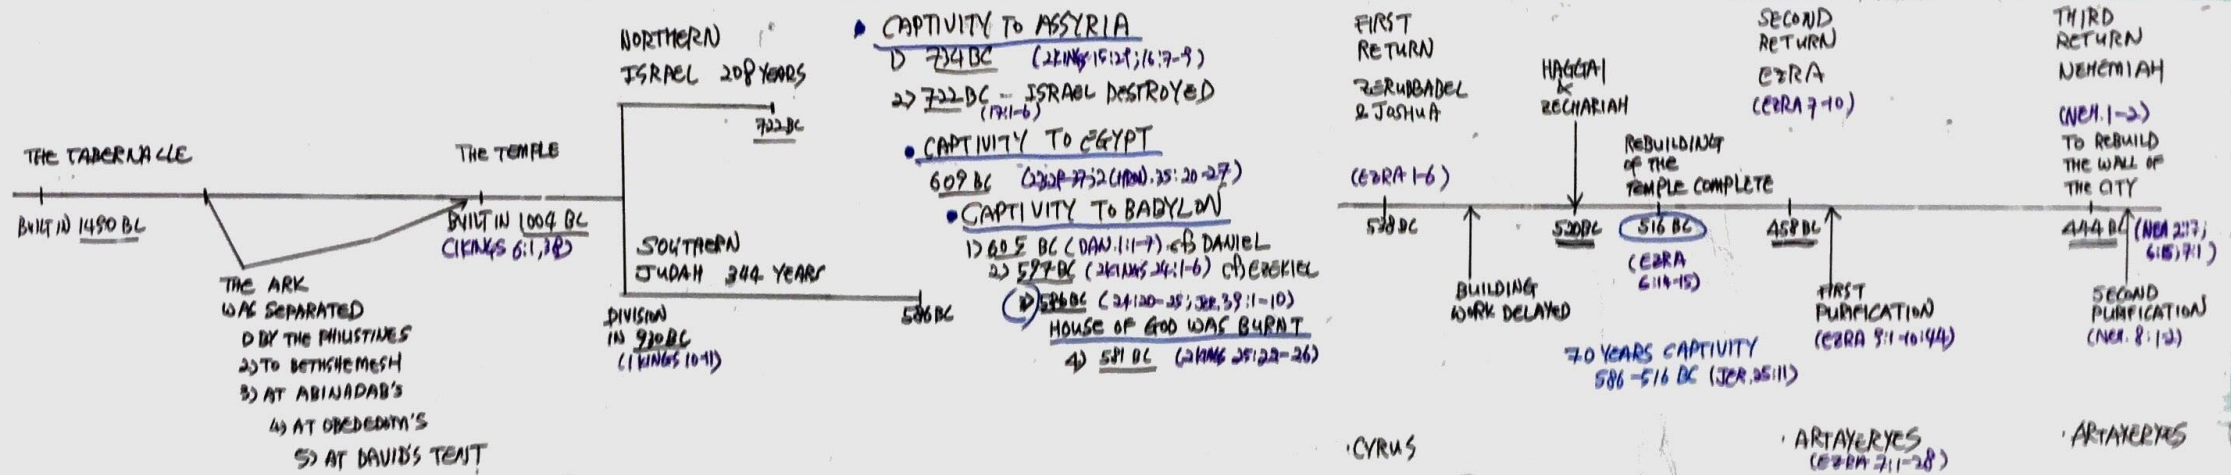 THE TABERNACLE
BUILT IN 1490 BC
THE ARK
WAS SEPARATED
1) BY THE PHILISTINES
2) TO BETHSHEMESH
3) AT ABINADAB'S
4) AT OBEDEDOM'S
5) AT DAVID'S TENT
THE TEMPLE
BUILT IN 1004 BC
(1 KINGS 6:1, 38)
NORTHERN
ISRAEL 208 YEARS
722 BC
SOUTHERN
JUDAH 344 YEARS
586 BC
DIVISION
IN 930 BC
(1 KINGS 10-11)
• CAPTIVITY TO ASSYRIA
1) 734 BC (2 KINGS 15:29; 16:7-9)
2) 722 BC - ISRAEL DESTROYED
(17:1-6)
• CAPTIVITY TO EGYPT
609 BC (23:29-37; 2 CHRON. 35:20-27)
• CAPTIVITY TO BABYLON
1) 605 BC (DAN. 1:1-7) cf) DANIEL
2) 597 BC (2 KINGS 24:1-6) cf) EZEKIEL
3) 586 BC (24:20-25; JER. 39:1-10)
HOUSE OF GOD WAS BURNT
4) 581 BC (2 KINGS 25:22-26)
FIRST
RETURN
ZERUBBABEL
& JOSHUA
(EZRA 1-6)
538 BC
BUILDING
WORK DELAYED
HAGGAI
&
ZECHARIAH
520 BC
REBUILDING
OF THE
TEMPLE COMPLETE
516 BC
(EZRA
6:14-15)
70 YEARS CAPTIVITY
586-516 BC (JER. 25:11)
SECOND
RETURN
EZRA
(EZRA 7-10)
458 BC
FIRST
PURIFICATION
(EZRA 9:1-10:44)
THIRD
RETURN
NEHEMIAH
(NEH. 1-2)
TO REBUILD
THE WALL OF
THE CITY
444 BC (NEH 2:17;
6:15; 7:1)
SECOND
PURIFICATION
(NEH. 8:1-2)
• CYRUS
• ARTAXERXES
(EZRA 7:1-28)
• ARTAXERXES